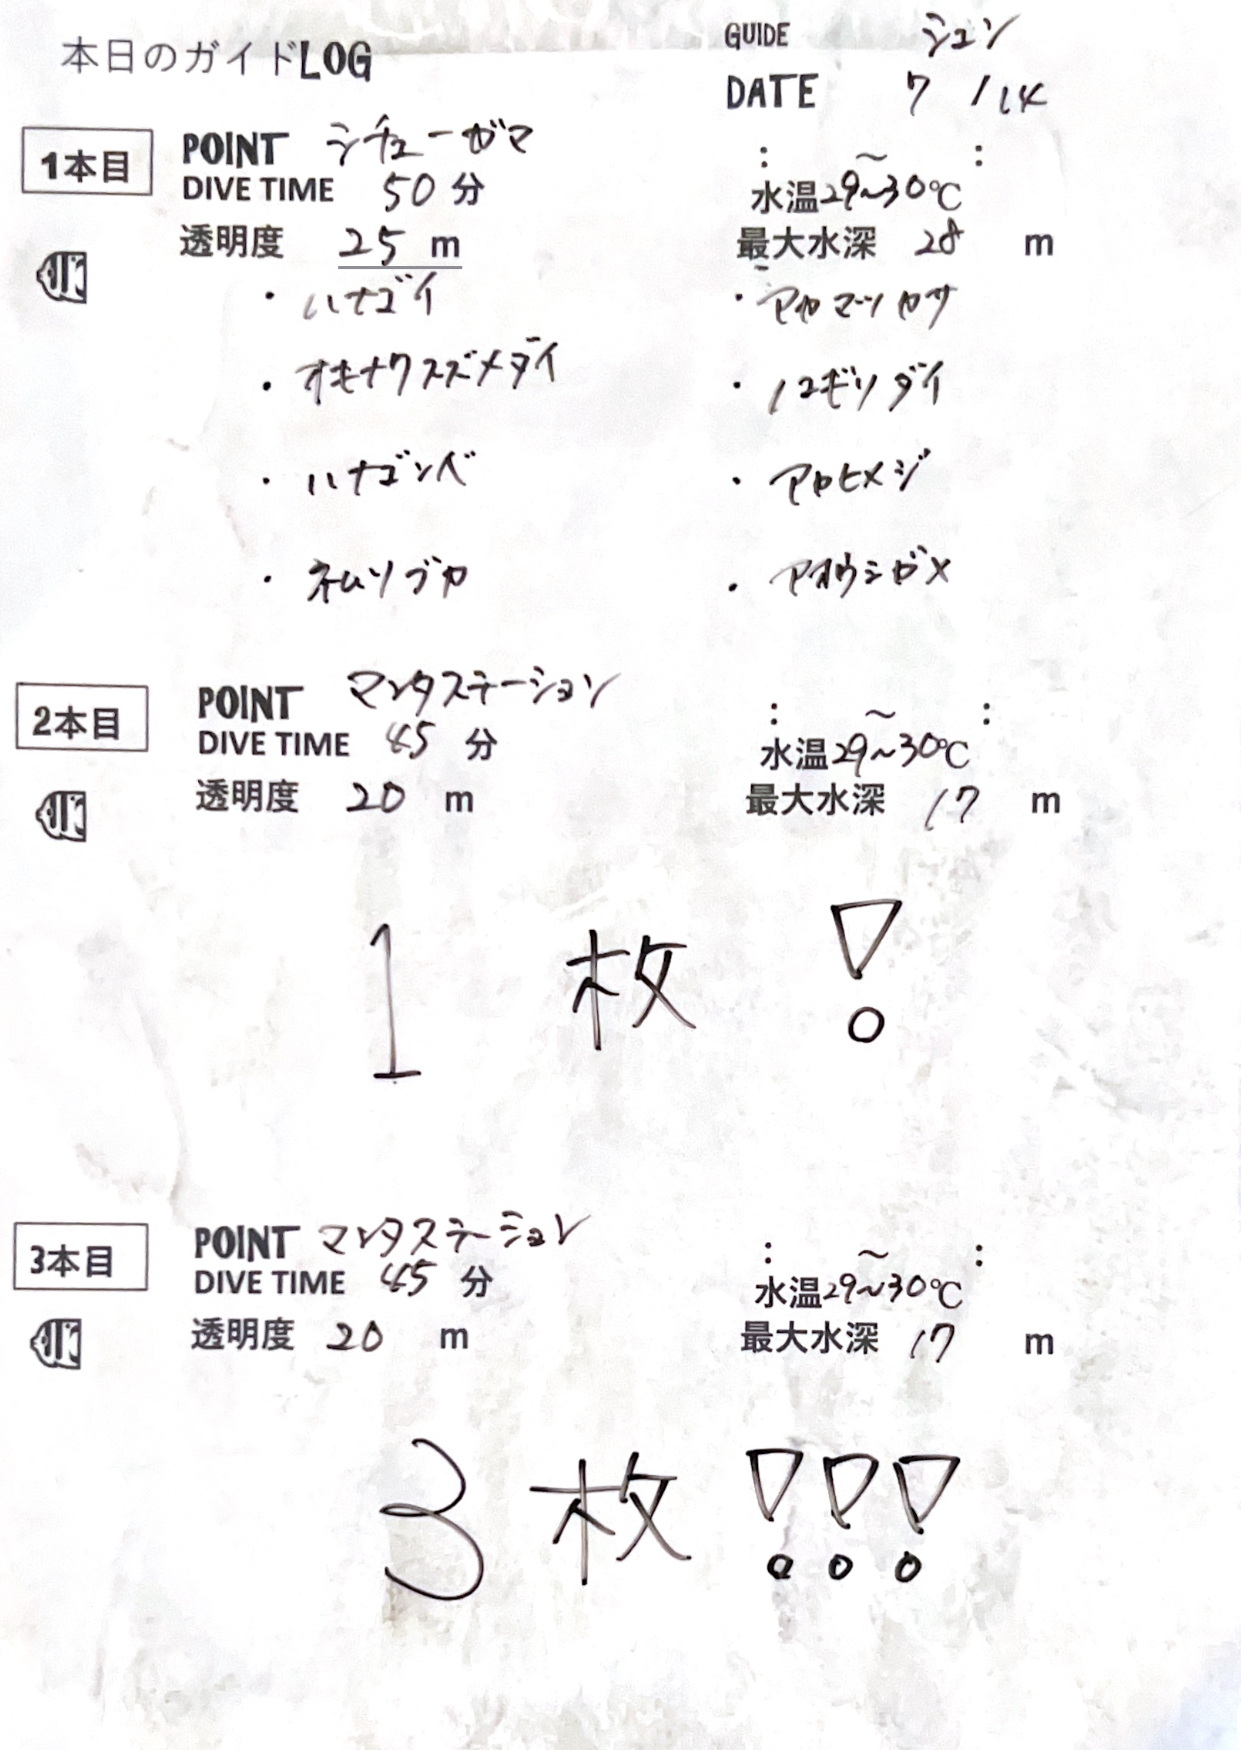 本日のガイドLOG
GUIDE シュン
DATE 7 / 14
1本目
POINT シチューガマ
: ～ :
DIVE TIME 50 分
水温29~30℃
透明度 25 m
最大水深 28 m
・ハナゴイ
・アヤマツカサ
・オキナワスズメダイ
・ノコギリダイ
・ハナゴンベ
・アカヒメジ
・ネムリブカ
・アオウミガメ
2本目
POINT マンタステーション
: ～ :
DIVE TIME 45 分
水温29~30℃
透明度 20 m
最大水深 17 m
1 枚 !
3本目
POINT マンタステーション
: ～ :
DIVE TIME 45 分
水温29~30℃
透明度 20 m
最大水深 17 m
3 枚 !!!